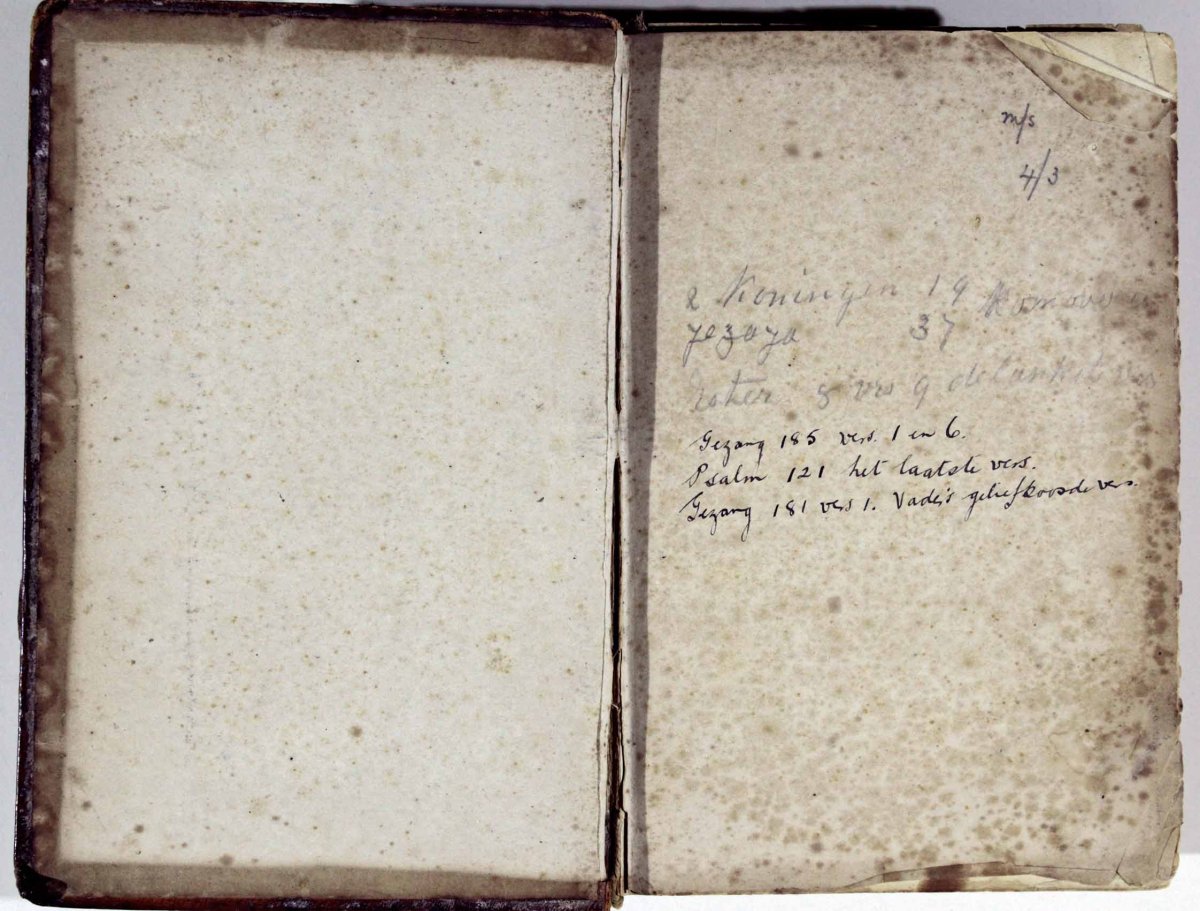 m/s
4/3
2 Koningen 19
Jezaja 37
Ester 8 vers 9 de vers
Gezang 185 vers. 1 en 6.
Psalm 121 het laatste vers.
Gezang 181 vers 1. Vader's geliefkoosde vers.